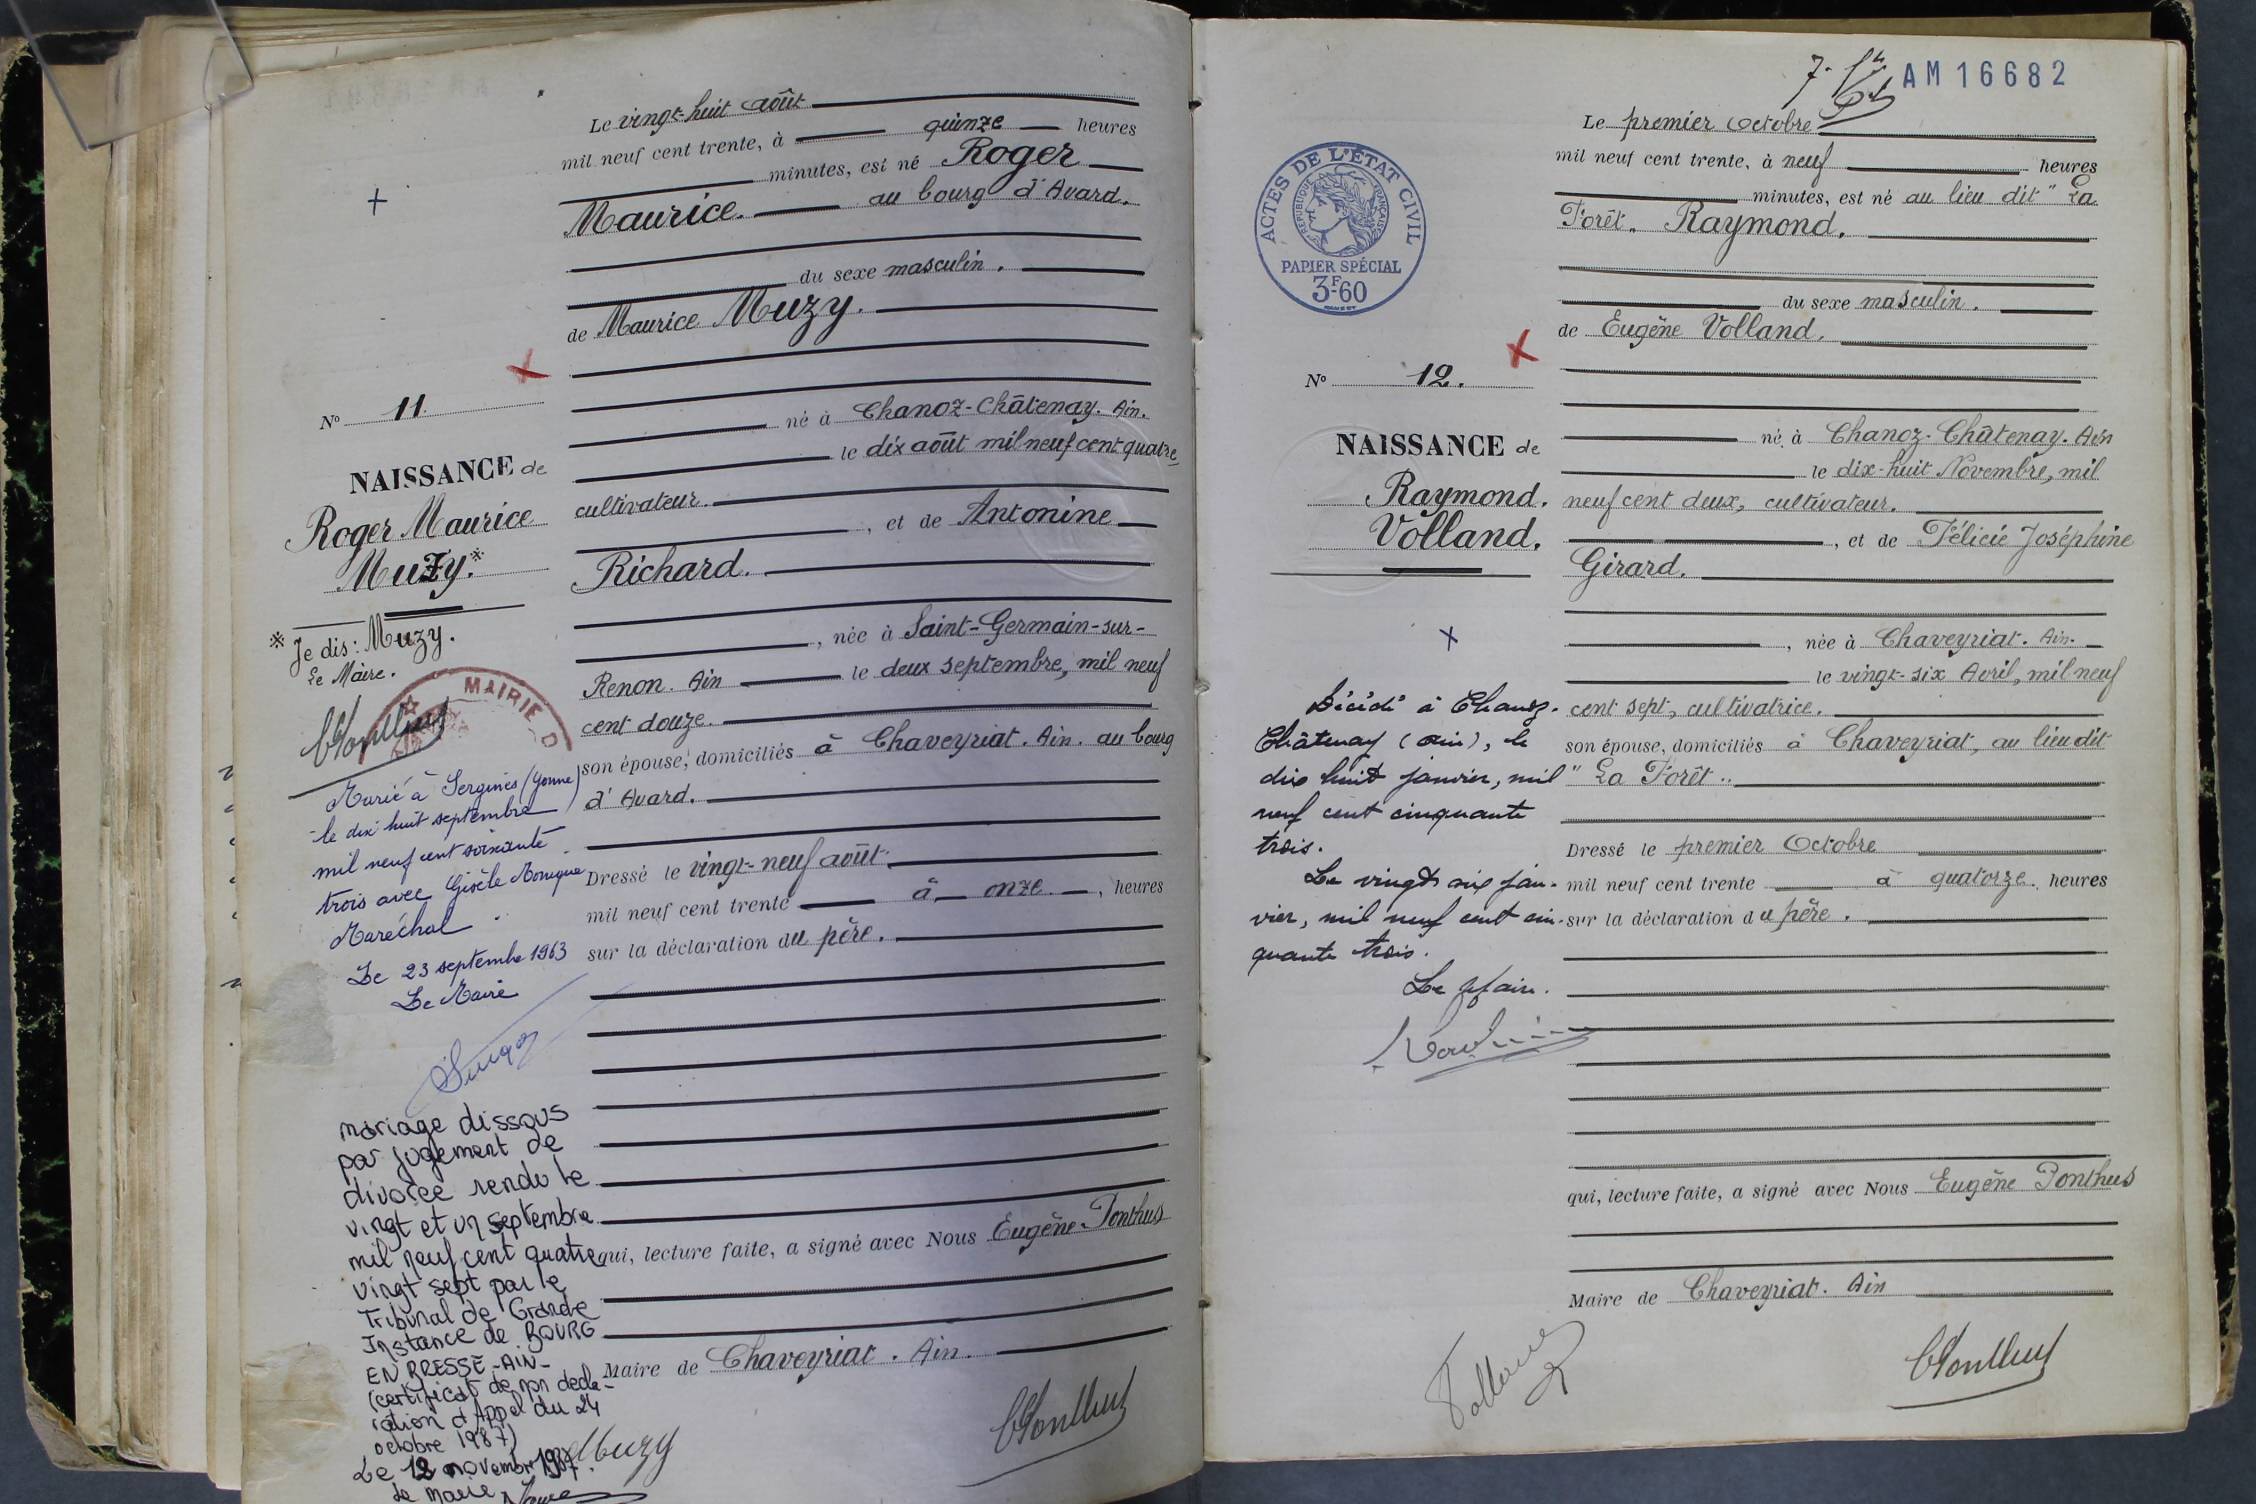 Le vingt-huit août
mil neuf cent trente, à quinze heures
minutes, est né Roger
Maurice. au bourg d'Avard.
du sexe masculin.
de Maurice Muzy.
né à Chanoz-Châtenay. Ain.
le dix août mil neuf cent quatre
cultivateur.
, et de Antonine
Richard.
, née à Saint-Germain-sur-
Renon. Ain le deux septembre, mil neuf
cent douze.
son épouse, domiciliés à Chaveyriat. Ain. au bourg
d'Avard.
Dressé le vingt-neuf août
mil neuf cent trente à onze , heures
sur la déclaration du père.
qui, lecture faite, a signé avec Nous Eugène Ponthus
Maire de Chaveyriat. Ain.
Muzy
No 11.
NAISSANCE de
Roger Maurice
Muzy.※
※ Je dis: Muzy.
Le Maire.
MAIRIE D
Marié à Sergines (Yonne)
le dix huit septembre
mil neuf cent soixante
trois avec Gisèle Monique
Maréchal.
Le 23 septembre 1963
Le Maire
mariage dissous
par jugement de
divorce rendu le
vingt et un septembre
mil neuf cent quatre
vingt sept par le
Tribunal de Grande
Instance de BOURG
EN BRESSE-AIN-
(certificat de non decla-
ration d'Appel du 24
octobre 1987)
Le 12 novembre 1987.
Le Maire
7-
AM16682
Le premier Octobre
mil neuf cent trente, à neuf heures
minutes, est né au lieu dit "La
Forêt. Raymond.
du sexe masculin.
de Eugène Volland.
né à Chanoz-Châtenay. Ain
le dix-huit Novembre, mil
neuf cent deux, cultivateur.
, et de Félicie Joséphine
Girard.
, née à Chaveyriat. Ain.
le vingt-six Avril, mil neuf
cent sept, cultivatrice.
son épouse, domiciliés à Chaveyriat, au lieu dit
"La Forêt".
Dressé le premier Octobre
mil neuf cent trente à quatorze heures
sur la déclaration du père.
qui, lecture faite, a signé avec Nous Eugène Ponthus
Maire de Chaveyriat. Ain
ACTES DE L'ÉTAT CIVIL
RÉPUBLIQUE FRANÇAISE
PAPIER SPÉCIAL
3F60
No 12.
NAISSANCE de
Raymond.
Volland.
Décédé à Chanoz-
Châtenay (Ain), le
dix huit janvier, mil
neuf cent cinquante
trois.
Le vingt six jan-
vier, mil neuf cent cin-
quante trois.
Le Maire.